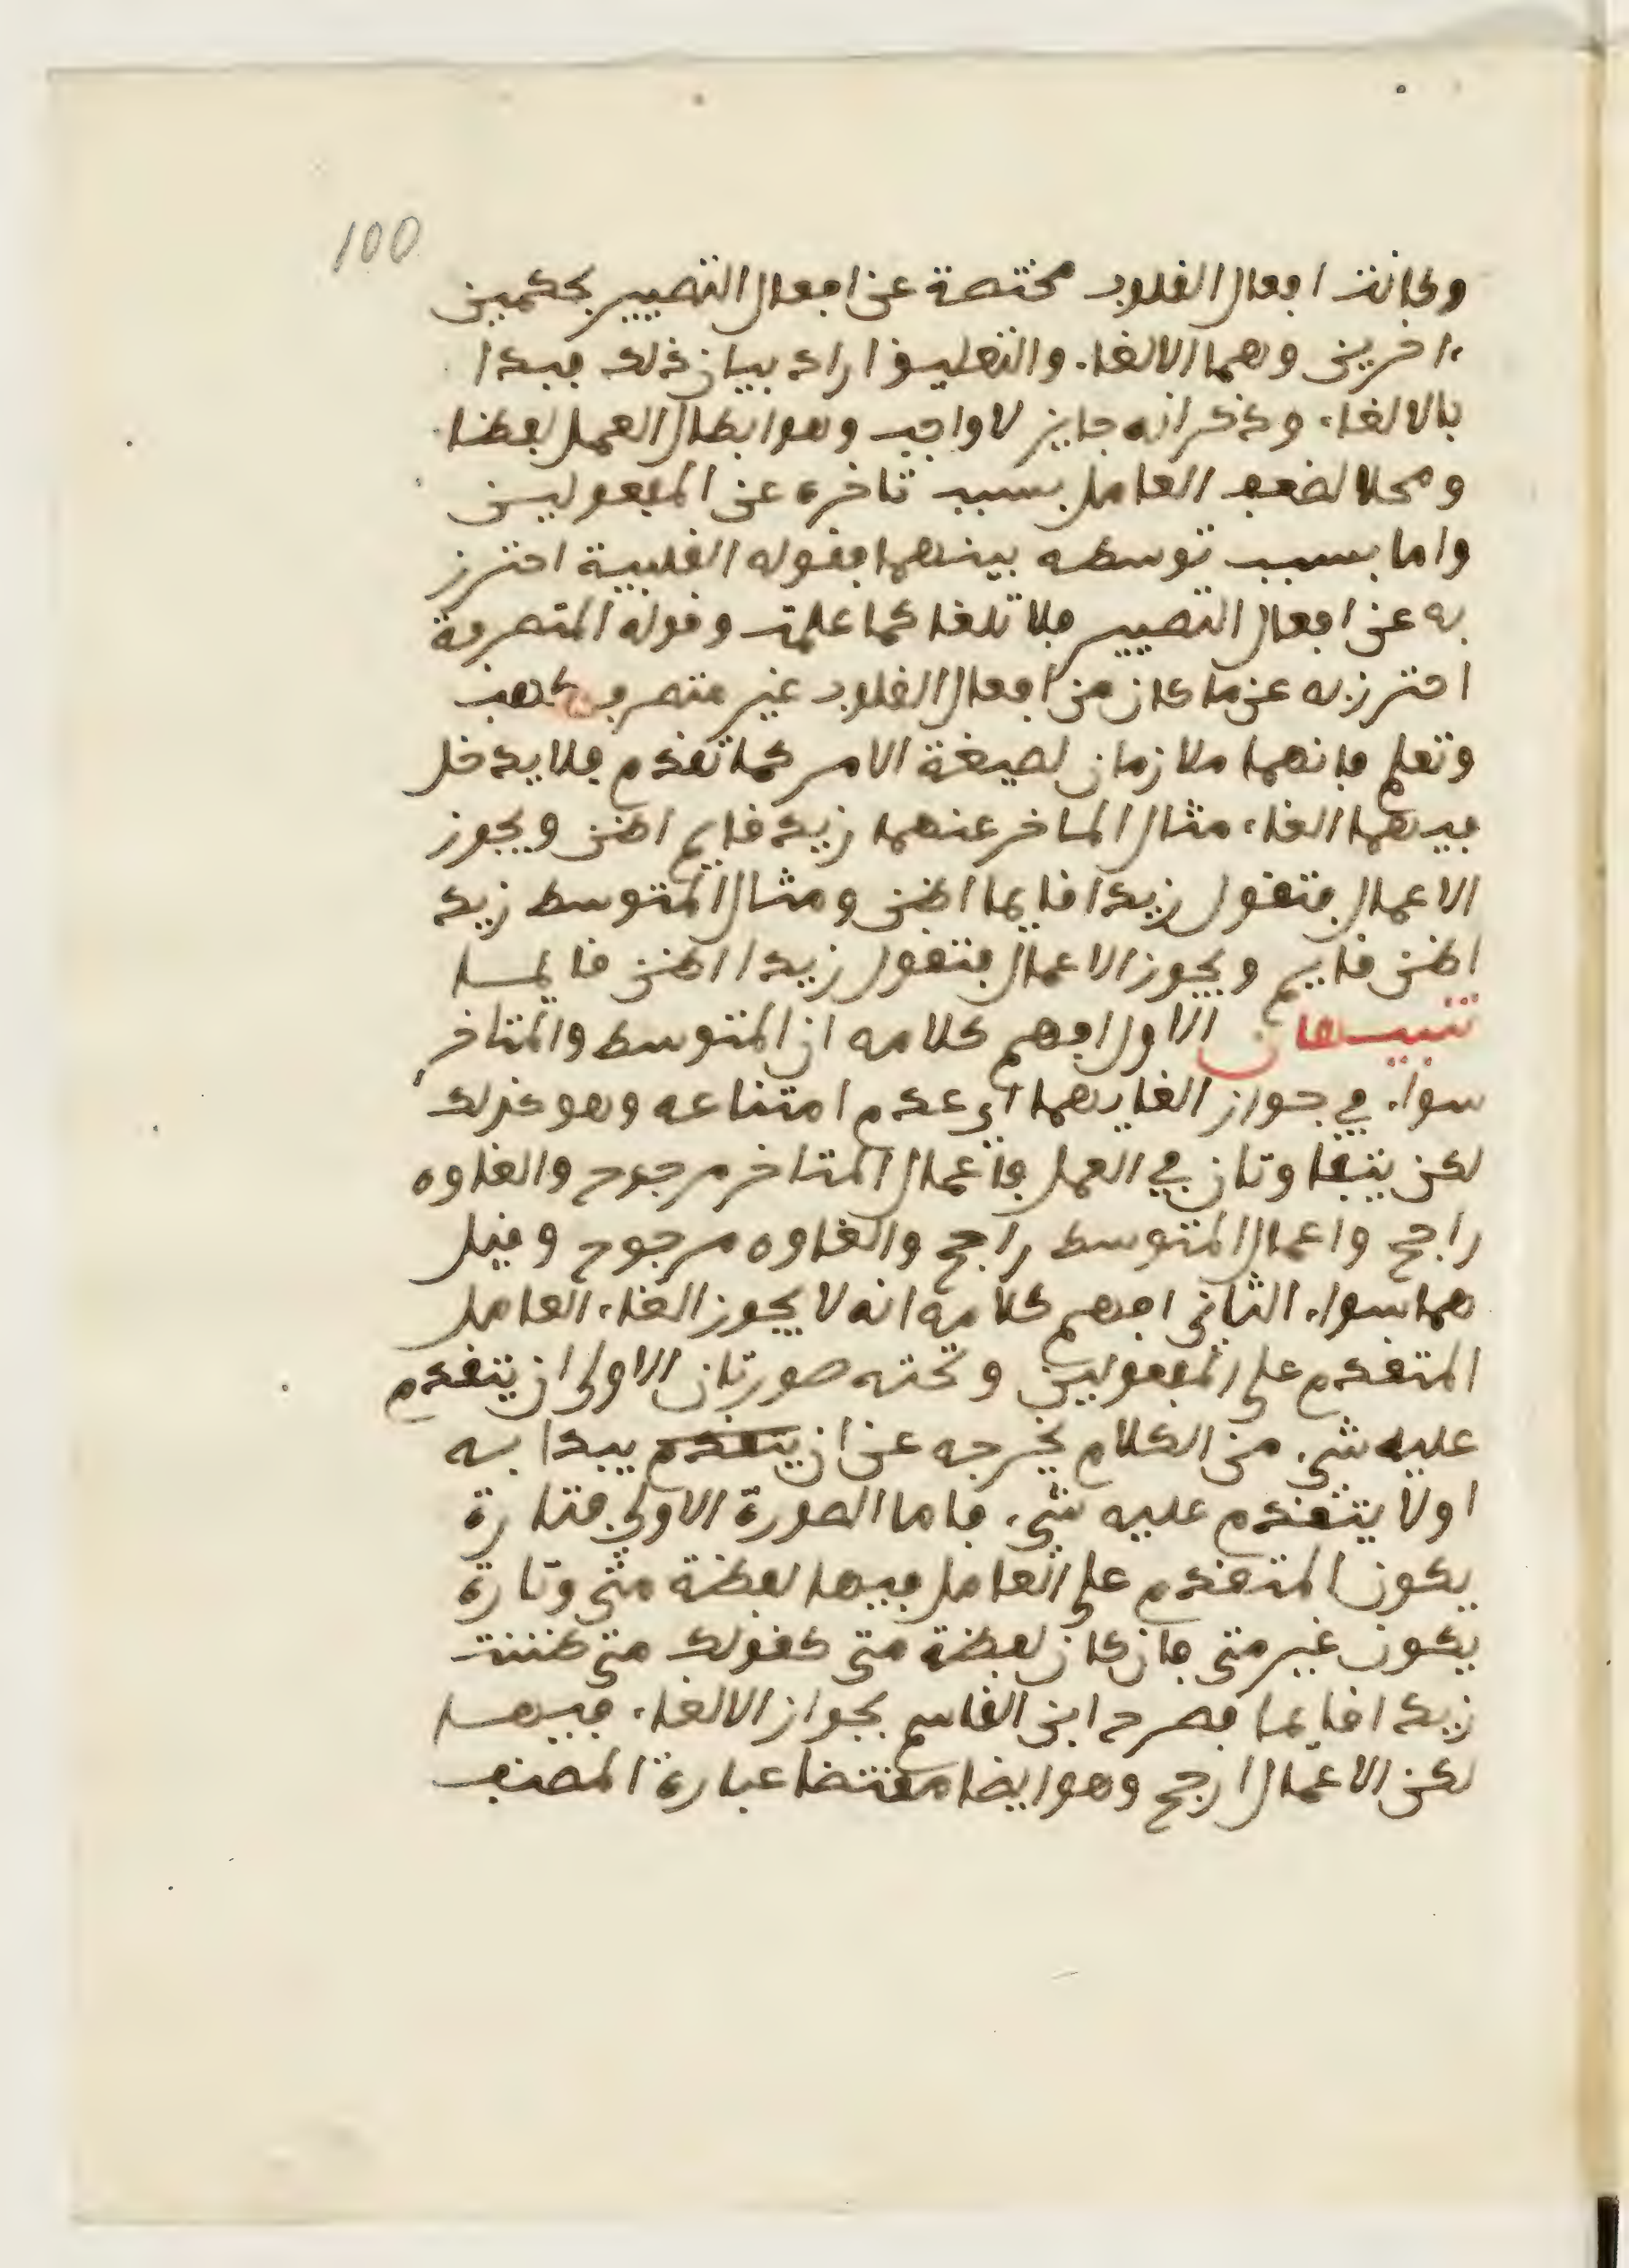 100
وكانت افعال القلوب مختصة عن افعال التصيير بحكمين
ءاخرين وهما الالغاء والتعليق اراد بيان ذلك فبدا
بالالغاء وذكر انه جايز لا واجب وهو ابطال العمل لفظا
ومحلا لضعف العامل بسبب تاخره عن المفعولين
واما بسبب توسطه بينهما فقوله القلبية احترز
به عن افعال التصيير فلا تلغا كما علمت وقوله المتصرفة
احترز به عن ما كان من افعال القلوب غير متصرف كهب
وتعلم فانهما ملازمان لصيغة الامر كما تقدم فلا يدخل
فيهما الغاء مثال المتاخر عنهما زيد قايم اظن ويجوز
الاعمال فتقول زيدا قايما اظن ومثال المتوسط زيد
اظن قايم ويجوز الاعمال فتقول زيدا اظن قايما
تنبيهان الاول افهم كلامه ان المتوسط والمتاخر
سواء في جواز الغايهما اي عدم امتناعه وهو كذلك
لكن يتفاوتان في العمل فاعمال المتاخر مرجوح والغاوه
راجح واعمال المتوسط راجح والغاوه مرجوح وقيل
هما سواء الثاني افهم كلامه انه لا يجوز الغاء العامل
المتقدم على المفعولين وتحته صورتان الاولى ان يتقدم
عليه شيء من الكلام يخرجه عن ان يتقدم يبدا به
او لا يتقدم عليه شيء فاما الصورة الاولى فتارة
يكون المتقدم على العامل فيها لفظة متى وتارة
يكون غير متى فان كان لفظة متى كقولك متى ظننت
زيدا قايما فصرح ابن القاسم بجواز الالغاء فيها
لكن الاعمال ارجح وهو ايضا مقتضا عبارة المصنف